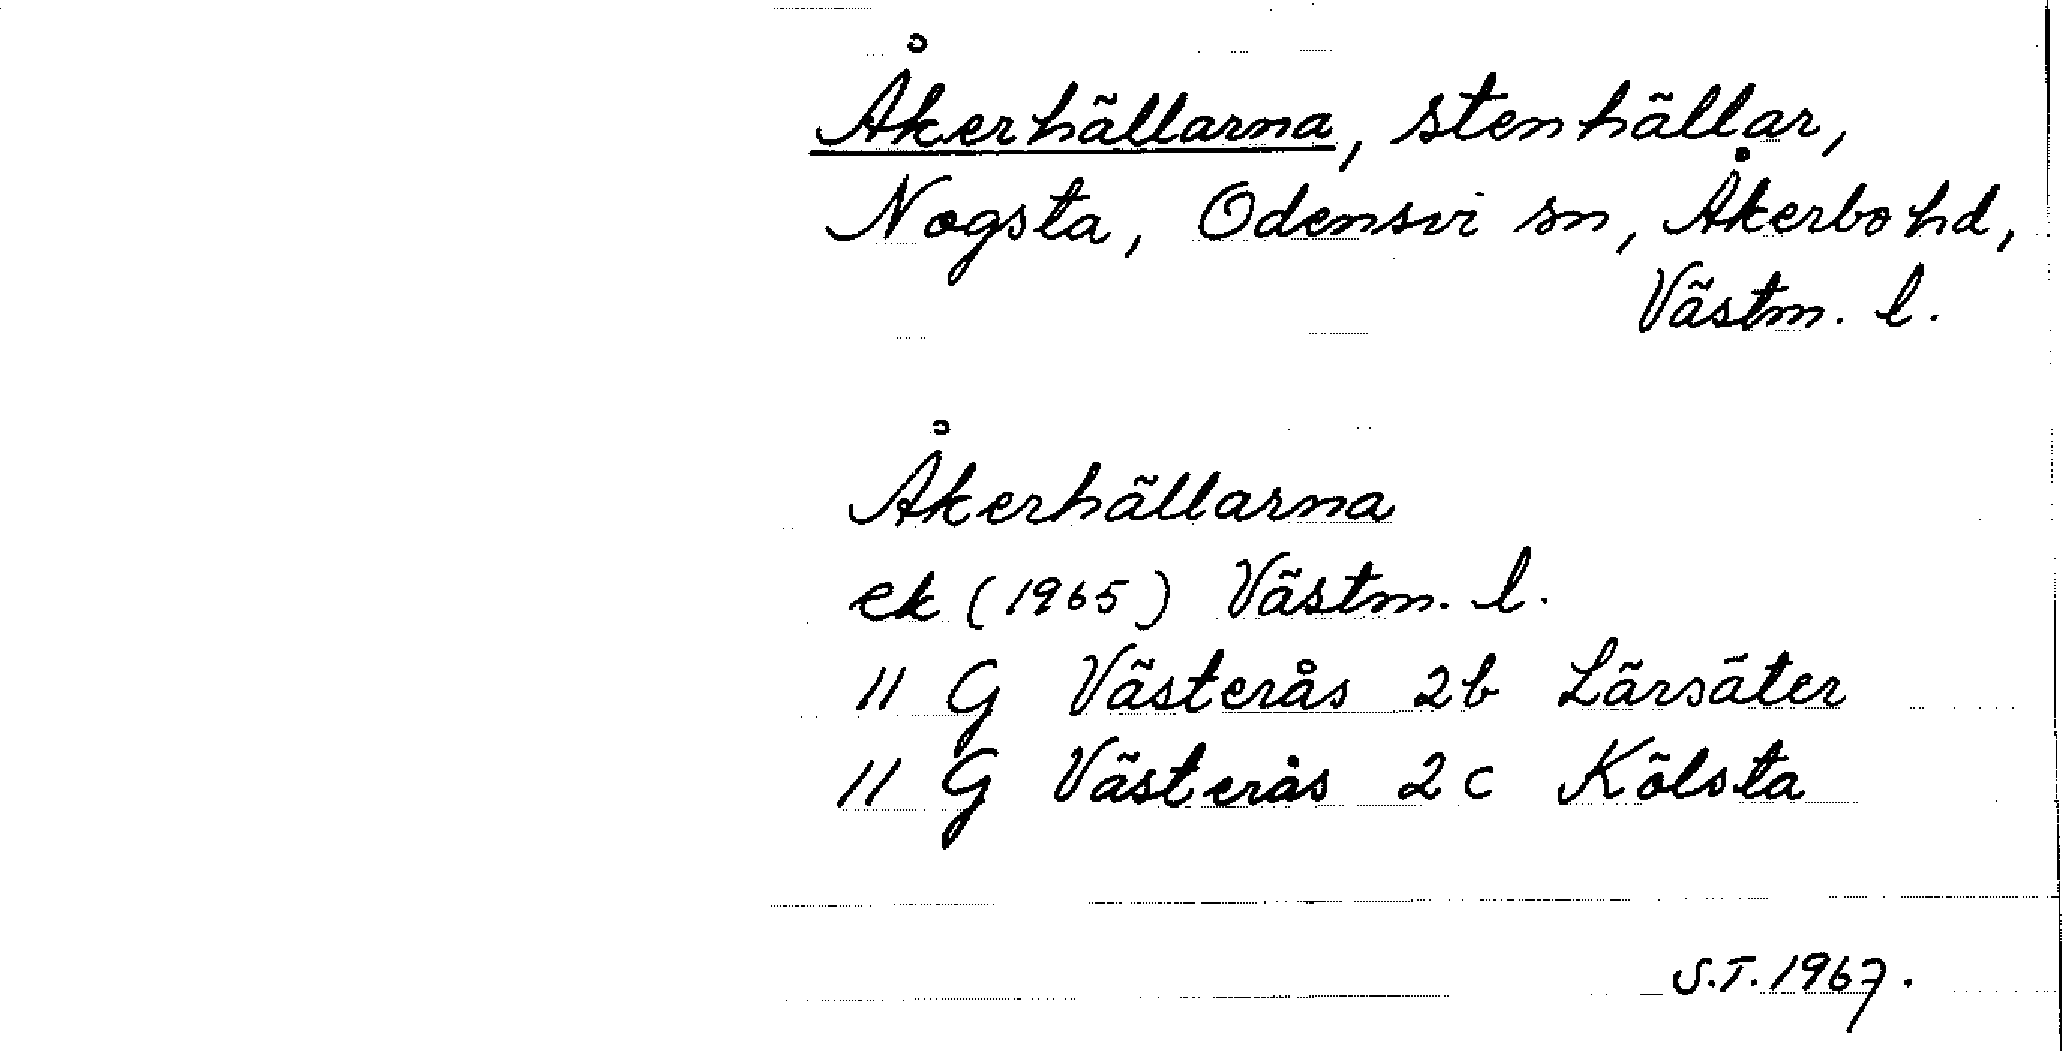 Åkerhällarna, stenhällar,
Nogsta, Odensvi sn, Åkerbo hd,
Västm. l.
Åkerhällarna
ek (1965) Västm. l.
11 G Västerås 2b Lärsäter
11 G Västerås 2c Kölsta
S.T. 1967.